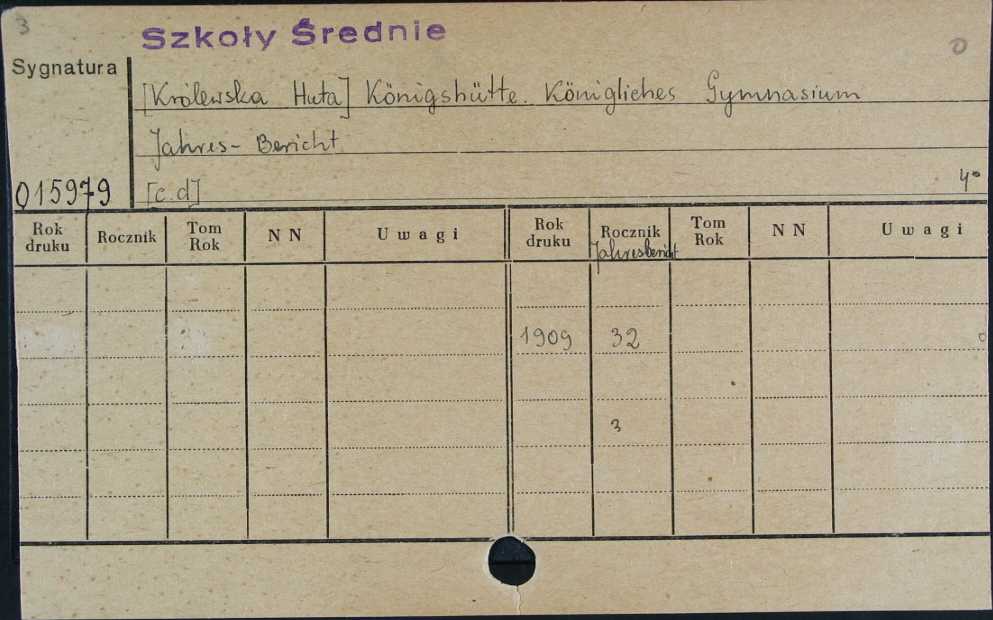 3
Szkoły Średnie
O
Sygnatura
[Królewska Huta] Königshütte. Königliches Gymnasium
Jahres-Bericht
015979 [c.d] 4°
Rok druku Rocznik Tom Rok NN Uwagi Rok druku Rocznik Tom Rok NN Uwagi
Jahresbericht
1909 32
3